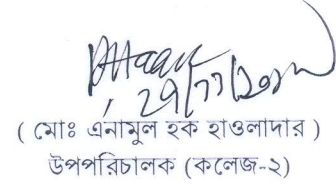 ( মোঃ এনামুল হক হাওলাদার )
উপপরিচালক (কলেজ-২)